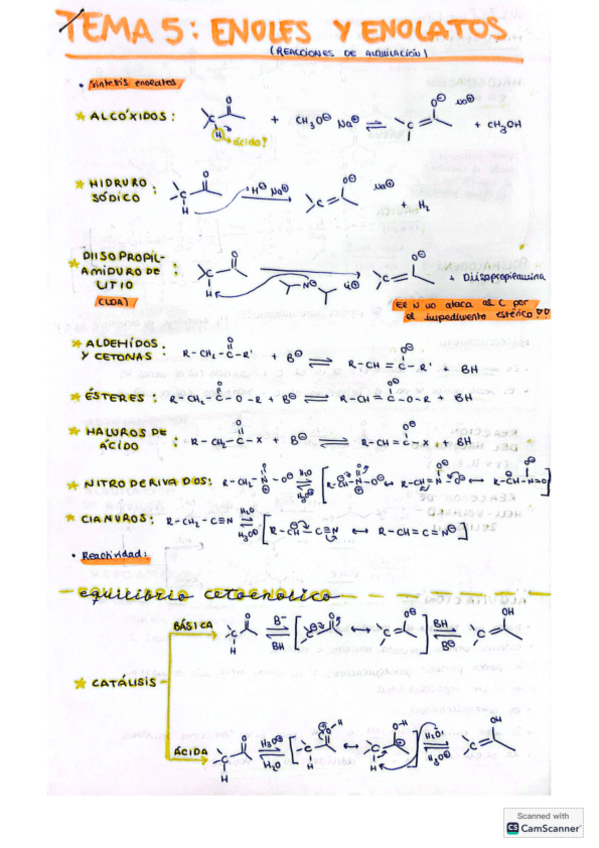 TEMA 5: ENOLES Y ENOLATOS
(REACCIONES DE ALQUILACIÓN)
• Síntesis enolatos
★ ALCÓXIDOS: C O H + CH₃O⊖ Na⊕ ⇌ C O⊖ Na⊕ + CH₃OH
ácido?
★ HIDRURO SÓDICO: C O H H⊖ Na⊕ → C O⊖ Na⊕ + H₂
★ DIISOPROPIL-
AMIDURO DE : C O H N⊖ Li⊕ → C O⊖ + Diisopropilamina
LITIO
(LDA)
El N no ataca al C por
el impedimento estérico!!
★ ALDEHÍDOS
Y CETONAS: R-CH₂-C(=O)-R' + B⊖ ⇌ R-CH=C(O⊖)-R' + BH
★ ÉSTERES: R-CH₂-C(=O)-O-R + B⊖ ⇌ R-CH=C(O⊖)-O-R + BH
★ HALUROS DE
ÁCIDO : R-CH₂-C(=O)-X + B⊖ ⇌ R-CH=C(O⊖)-X + BH
★ NITRODERIVADOS: R-CH₂-N⊕(=O)-O⊖ H₂O ⇌ H₃O⊕ [R-CH⊖-N⊕(=O)-O⊖ ↔ R-CH=N⊕ ↔ R-CH-N=O]
★ CIANUROS: R-CH₂-C≡N H₂O ⇌ H₃O⊕ [R-CH⊖-C≡N ↔ R-CH=C=N⊖]
• Reactividad:
equilibrio cetoenolico
BÁSICA C O H B⁻ ⇌ BH [C⊖ O ↔ C O⊖] BH ⇌ B⊖ C OH
★ CATÁLISIS
ÁCIDA C O H H₃O⊕ ⇌ H₂O [C O⊕-H H ↔ C⊕ O-H H] H₂O ⇌ H₃O⊕ C OH
Scanned with
CS CamScanner